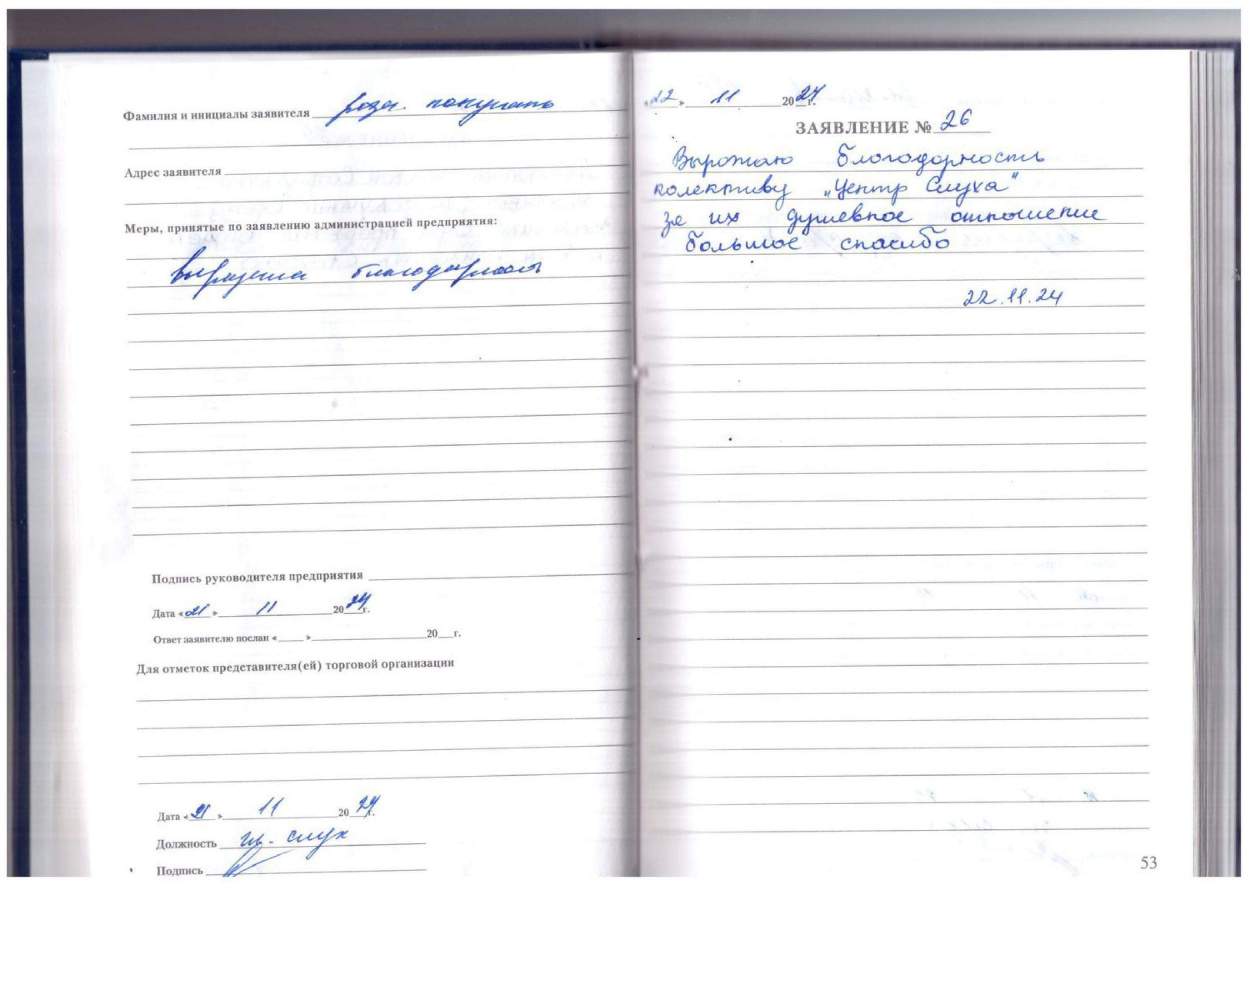 Фамилия и инициалы заявителя
Адрес заявителя
Меры, принятые по заявлению администрацией предприятия:
выражена благодарность
Подпись руководителя предприятия
Дата «21» 11 2024г.
Ответ заявителю послан «    » 20   г.
Для отметок представителя(ей) торговой организации
Дата «21» 11 2024г.
Должность
Подпись
«22» 11 2024г.
ЗАЯВЛЕНИЕ № 26
Выромаю благодорность
колективу „Центр Слуха"
за их душевное отношение
большое спасибо
22.11.24
53